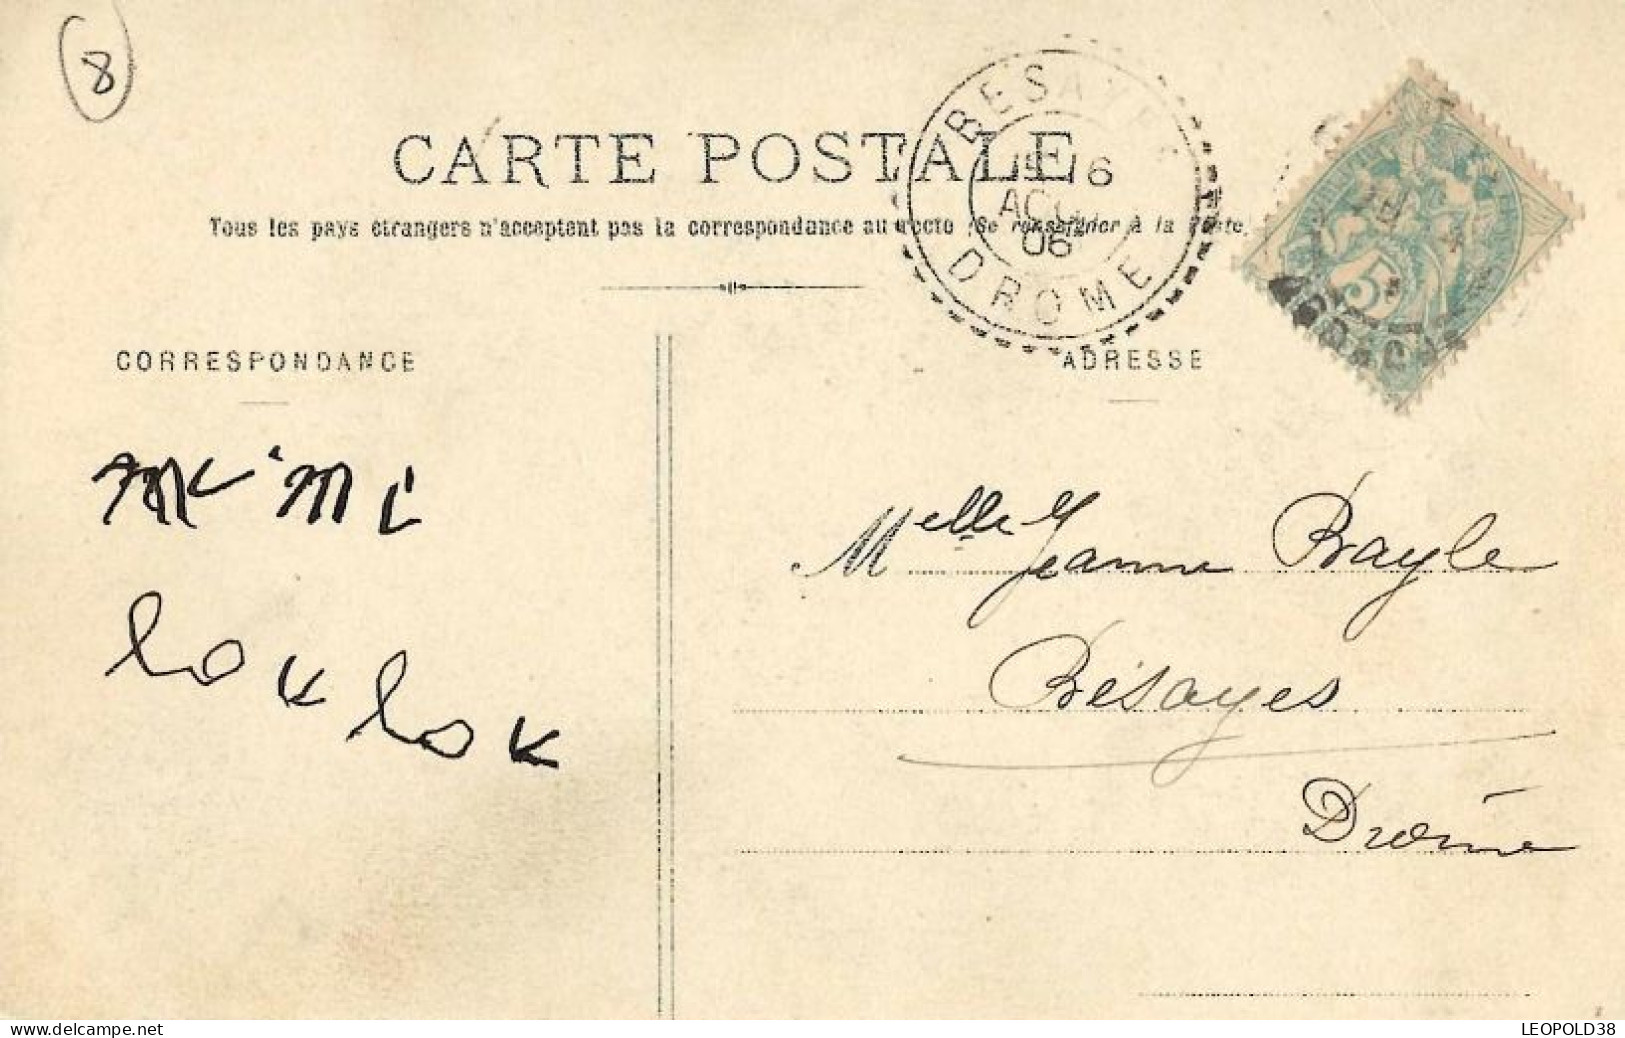 8
CARTE POSTALE
Tous les pays étrangers n'acceptent pas la correspondance au recto (Se renseigner à la Poste)
BESAYE
6
AOU
06
DROME
5
CORRESPONDANCE
ADRESSE
Melle Jeanne Bayle
Bésayes
Drôme
LEOPOLD38
https://www.delcampe.net